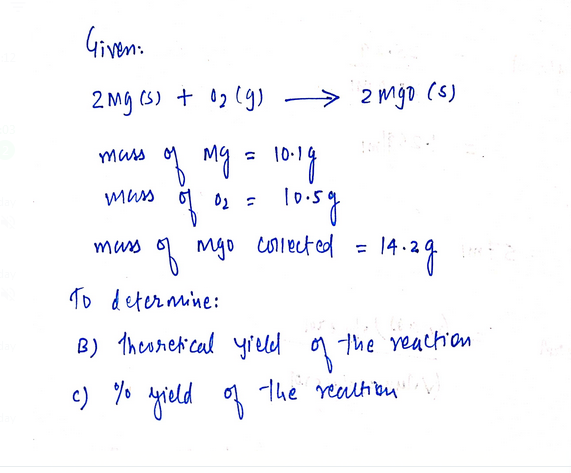 Given:
2 Mg (s) + O2 (g) ⟶ 2 MgO (s)
mass of Mg = 10.1g
mass of O2 = 10.5g
mass of MgO collected = 14.2g
To determine:
B) Theoretical yield of the reaction
c) % yield of the reaction